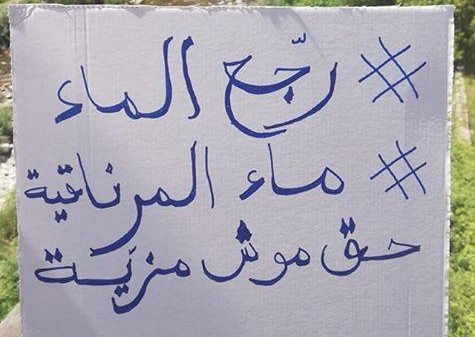 # رجّع الماء
# ماء المرناقية
حق موش مزيّة